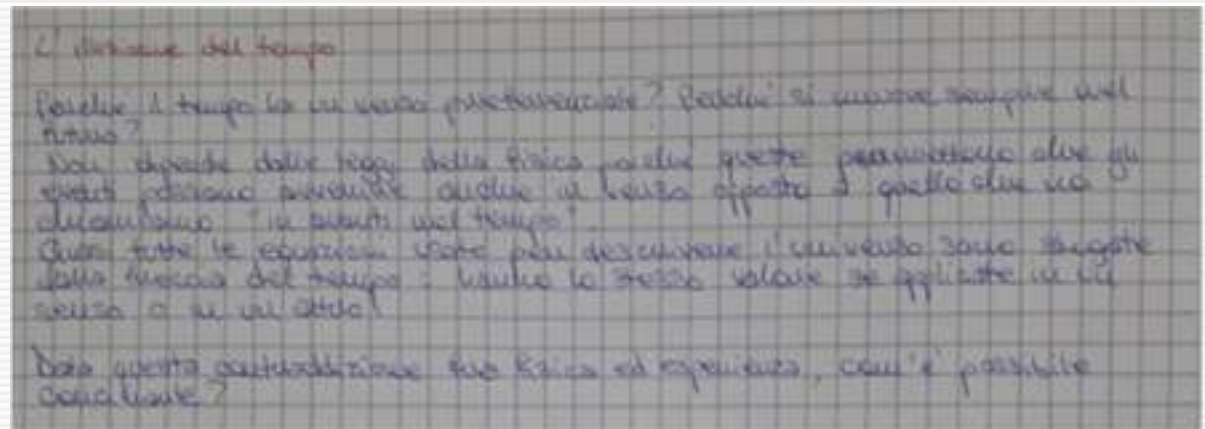 L' del tempo
Perché il tempo ha un senso preferenziale? Perché si muove sempre nel
futuro?
Non dipende dalle leggi della fisica poiché queste permettono che gli
eventi possano avvenire anche in senso opposto a quello che noi
chiamiamo "in avanti nel tempo".
Quasi tutte le equazioni usate per descrivere l'universo sono slegate
dalla freccia del tempo: hanno lo stesso valore se applicate in un
senso o in un altro!
Data questa contraddizione tra fisica ed esperienza, com'è possibile
conciliare?